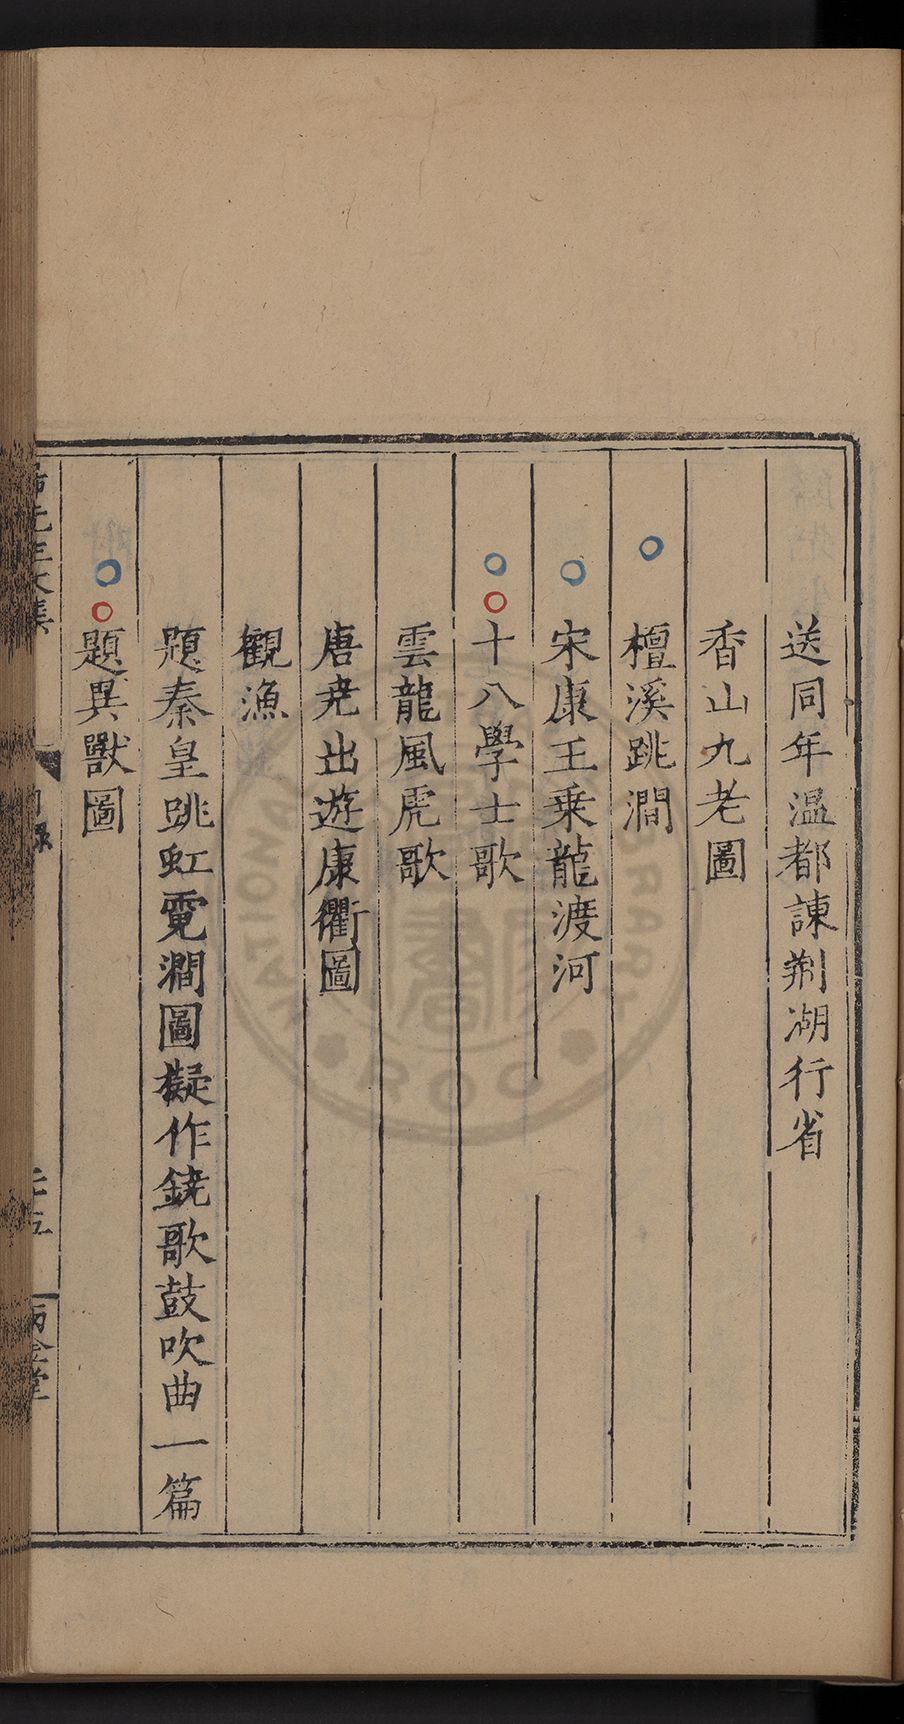 送同年溫都諫荊湖行省
香山九老圖
檀溪跳澗
宋康王乗龍渡河
十八學士歌
雲龍風虎歌
唐尭出遊康衢圖
觀漁
題秦皇跳虹霓澗圖擬作鐃歌鼓吹曲一篇
題異獸圖